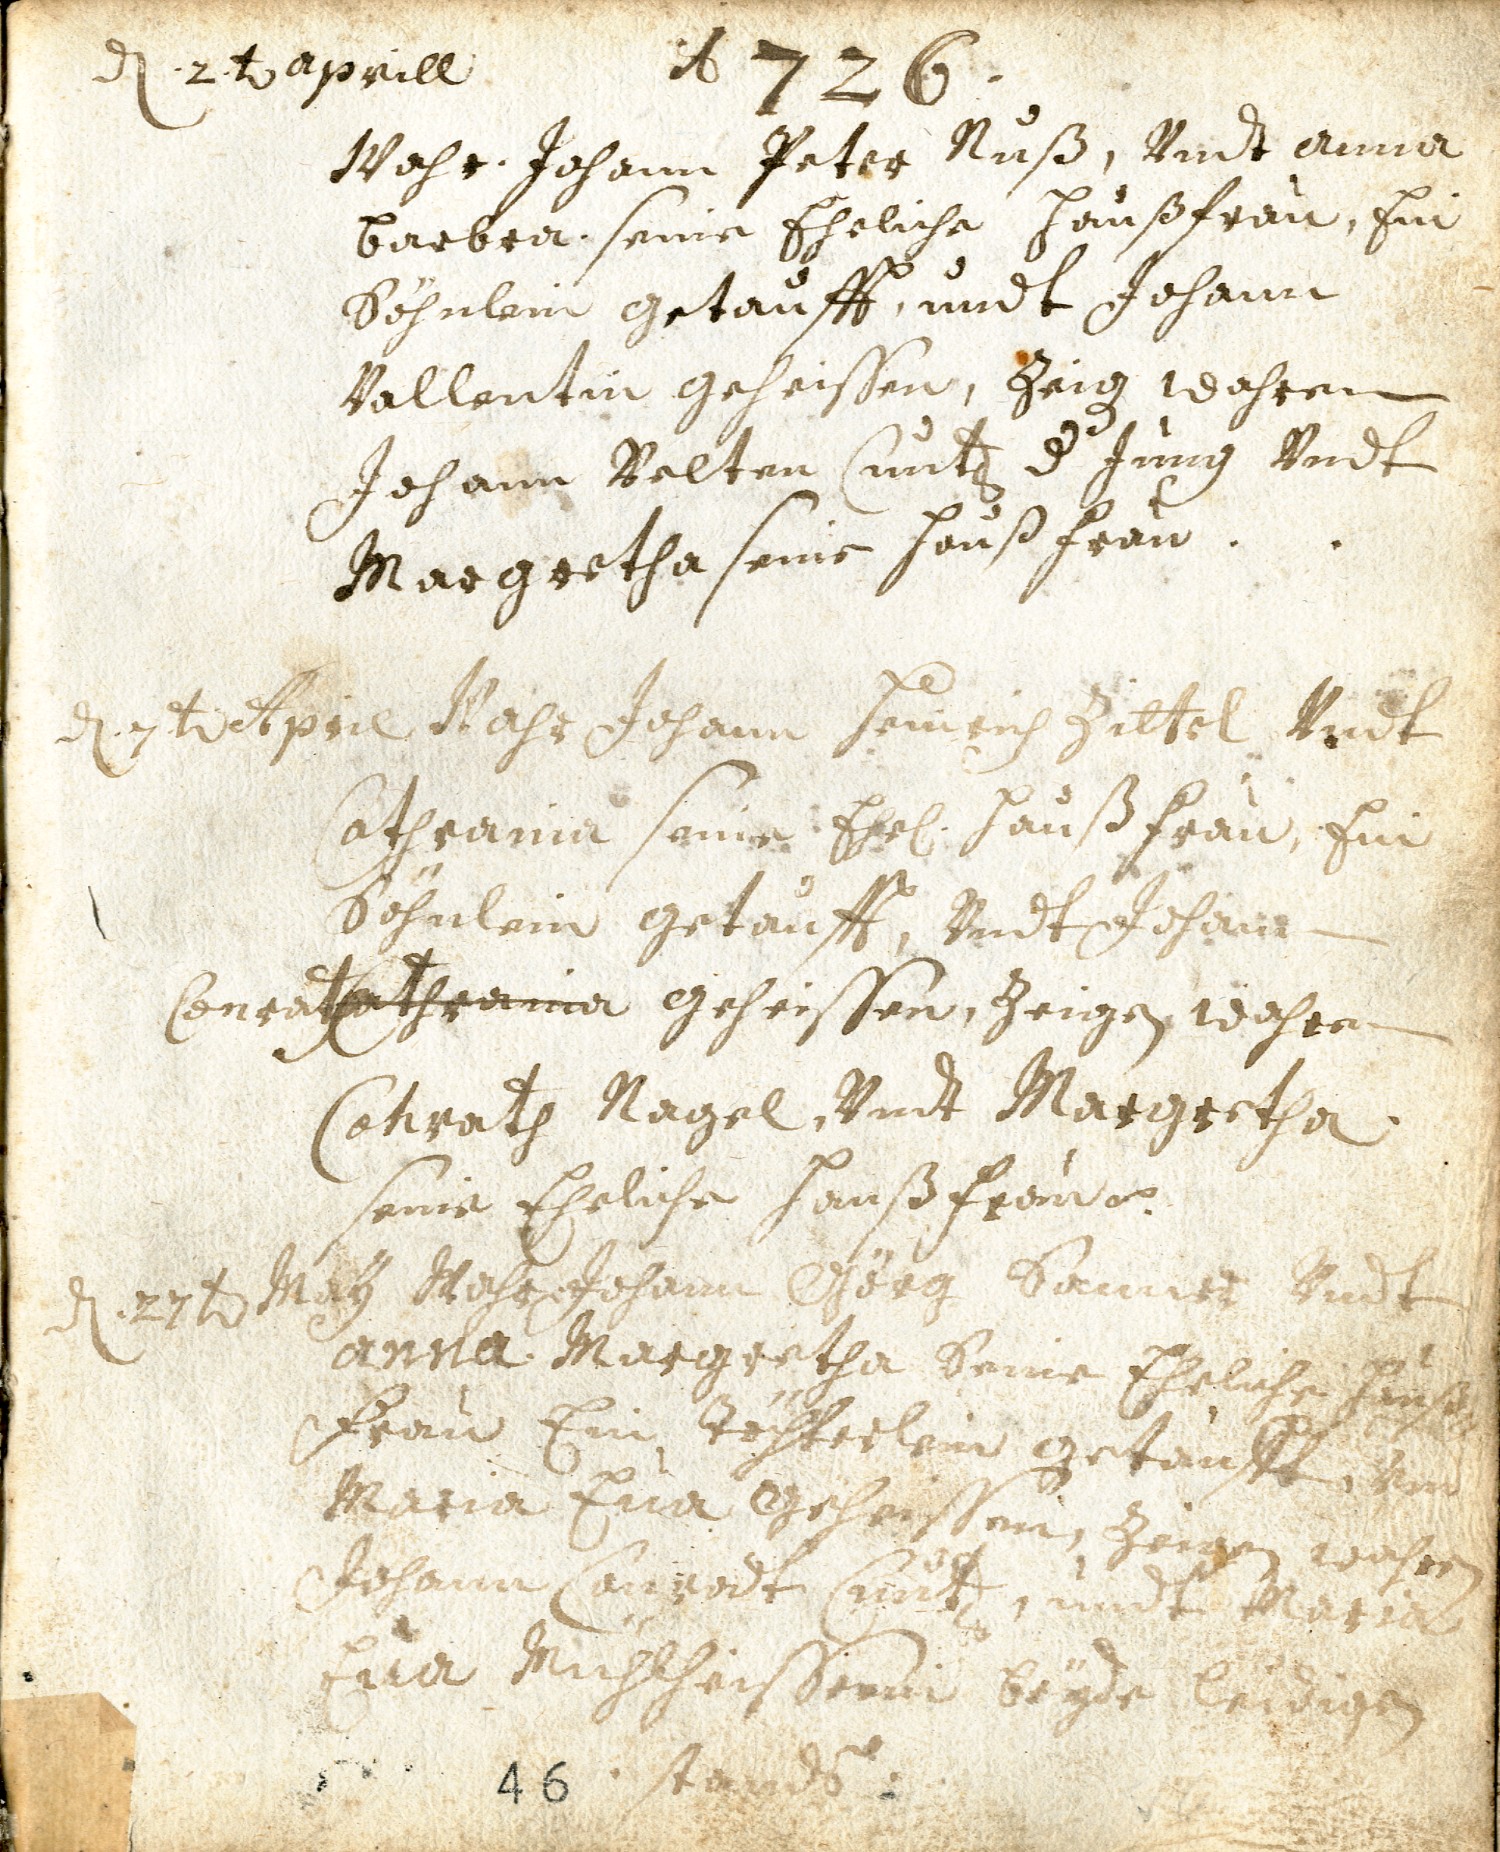 d. 2t aprill 1726.
Wahr Johann Peter Nuß, Undt anna
barbra seine Eheliche haußfrau, Ein
Söhnlein getaufft, undt Johann
Vallentin geheissen, Zeig wahren
Johann Velten Cuntz d Jung Undt
Margretha seine haußfrau.
d. 7t April Wahr Johann Heinrich Zittel Undt
Cathrania seine Ehel. haußfrau, Ein
Söhnlein getaufft, Undt Johann
Conrath Cathrania geheissen, Zeigen wahren
Conrath Nagel, Undt Margretha
seine Eheliche haußfrau.
d. 27t May Wahr Johann Görg Undt
anna Margretha Seine Eheliche hauß
frau Ein Töchterlein getaufft, un
Maria Eua Geheissen, Zeigen wahren
Johann Conradt Cuntz, undt Maria
Eua beyde ledigen
46 stands.